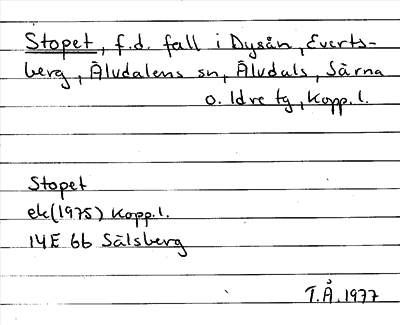 Stopet, f.d. fall i Dysån, Everts-
berg, Älvdalens sn, Älvdals, Särna
o. Idre tg, Kopp.l.
Stopet
ek(1975) Kopp.l.
14E 6b Sälsberg
T.Å. 1977